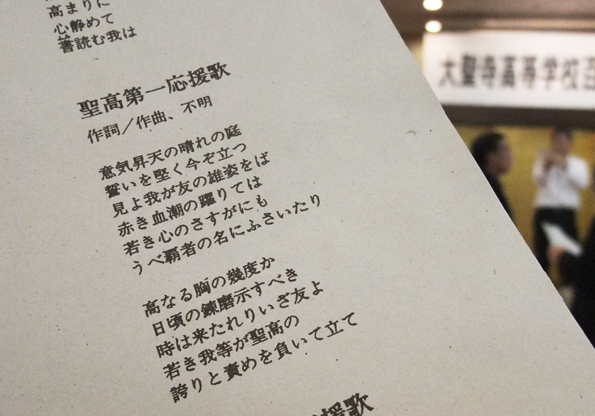 高まりに
心静めて
書読む我は
聖高第一応援歌
作詞／作曲、不明
意気昇天の晴れの庭
誓いを堅く今ぞ立つ
見よ我が友の雄姿をば
赤き血潮の躍りては
若き心のさすがにも
うべ覇者の名にふさいたり
高なる胸の幾度か
日頃の錬磨示すべき
時は来たれりいざ友よ
若き我等が聖高の
誇りと責めを負いて立て
応援歌
大聖寺高等学校百